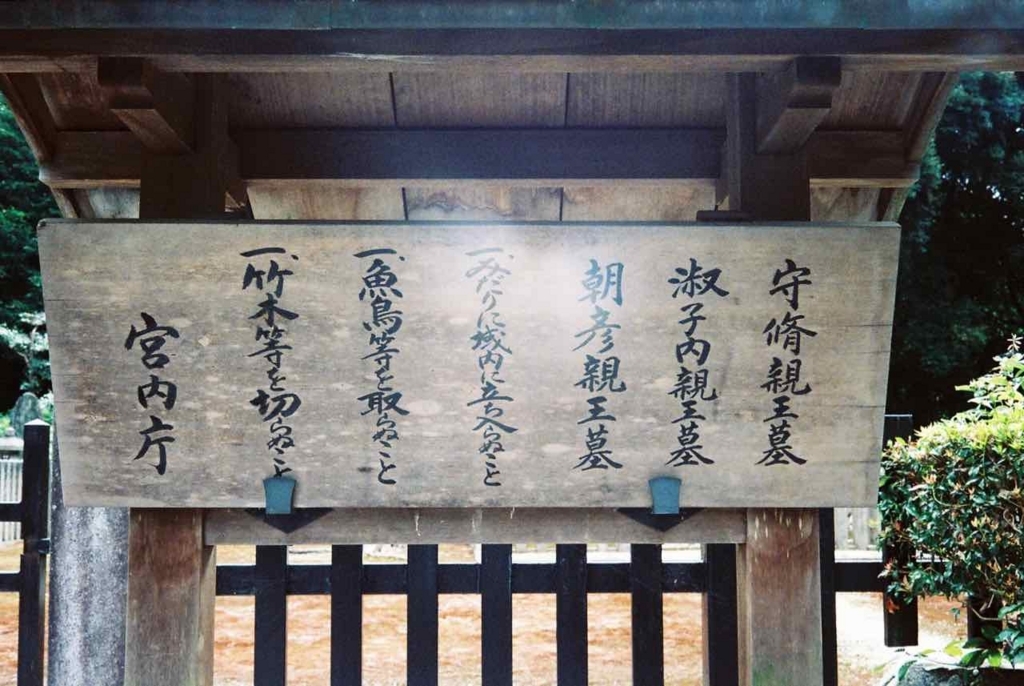 守脩親王墓
淑子内親王墓
朝彦親王墓
一、みだりに域内に立ち入らぬこと
一、魚鳥等を取らぬこと
一、竹木等を切らぬこと
宮内庁